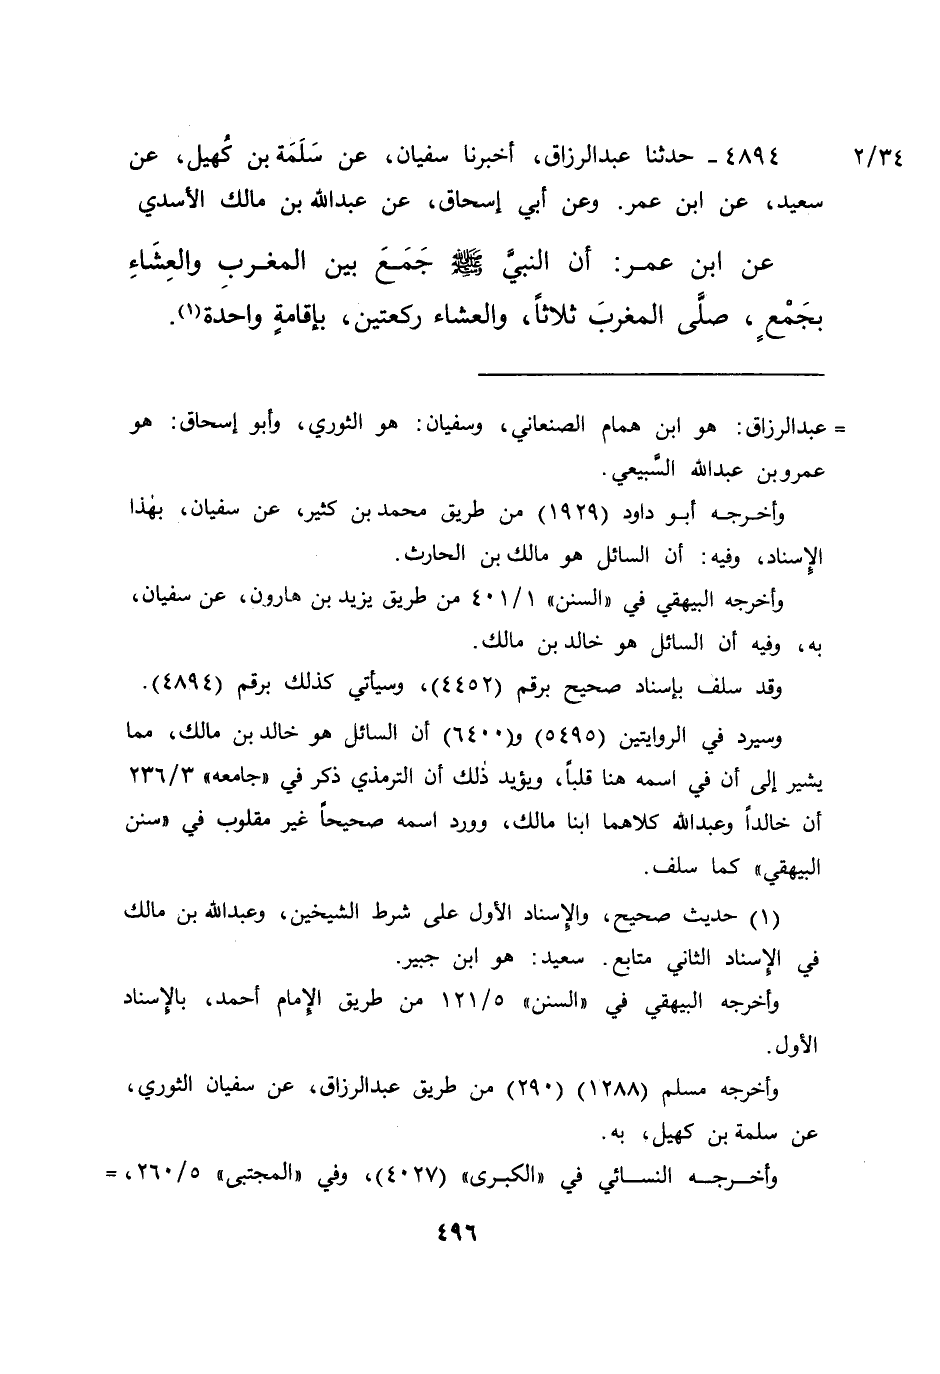 ٢/٣٤ ٤٨٩٤ ـ حدثنا عبدالرزاق، أخبرنا سفيان، عن سَلَمَة بن كُهيل، عن
سعيد، عن ابن عمر. وعن أبي إسحاق، عن عبدالله بن مالك الأسدي
عن ابن عمـر: أن النبيَّ ﷺ جَمَعَ بين المغـربِ والعِشَاءِ
بجَمْعٍ، صلَّى المغربَ ثلاثاً، والعشاء ركعتين، بإقامةٍ واحدة(١).
= عبدالرزاق: هو ابن همام الصنعاني، وسفيان: هو الثوري، وأبو إسحاق: هو
عمرو بن عبدالله السَّبيعي.
وأخـرجـه أبـو داود (١٩٢٩) من طريق محمد بن كثير، عن سفيان، بهٰذا
الإسناد، وفيه: أن السائل هو مالك بن الحارث.
وأخرجه البيهقي في «السنن» ٤٠١/١ من طريق يزيد بن هارون، عن سفيان،
به، وفيه أن السائل هو خالد بن مالك.
وقد سلف بإسناد صحيح برقم (٤٤٥٢)، وسيأتي كذلك برقم (٤٨٩٤).
وسيرد في الروايتين (٥٤٩٥) و(٦٤٠٠) أن السائل هو خالد بن مالك، مما
يشير إلى أن في اسمه هنا قلباً، ويؤيد ذٰلك أن الترمذي ذكر في «جامعه» ٢٣٦/٣
أن خالداً وعبدالله كلاهما ابنا مالك، وورد اسمه صحيحاً غير مقلوب في «سنن
البيهقي» كما سلف.
(١) حديث صحيح، والإسناد الأول على شرط الشيخين، وعبدالله بن مالك
في الإسناد الثاني متابع. سعيد: هو ابن جبير.
وأخرجه البيهقي في «السنن» ١٢١/٥ من طريق الإمام أحمد، بالإسناد
الأول.
وأخرجه مسلم (١٢٨٨) (٢٩٠) من طريق عبدالرزاق، عن سفيان الثوري،
عن سلمة بن كهيل، به.
وأخـرجـه النسـائي في «الكبـرى» (٤٠٢٧)، وفي «المجتبى» ٢٦٠/٥، =
٤٩٦